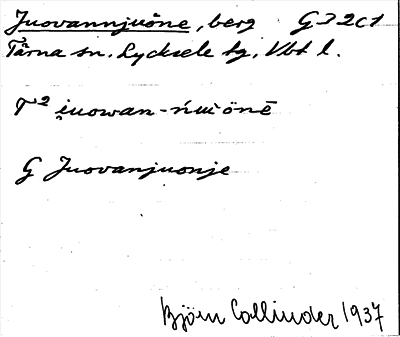 Juovannjuöne, berg G J 2c1
Tärna sn. Lycksele lg. Vbt l.
T² i̯uowan-ńu̯önē
G Juovanjuonje
Björn Collinder 1937